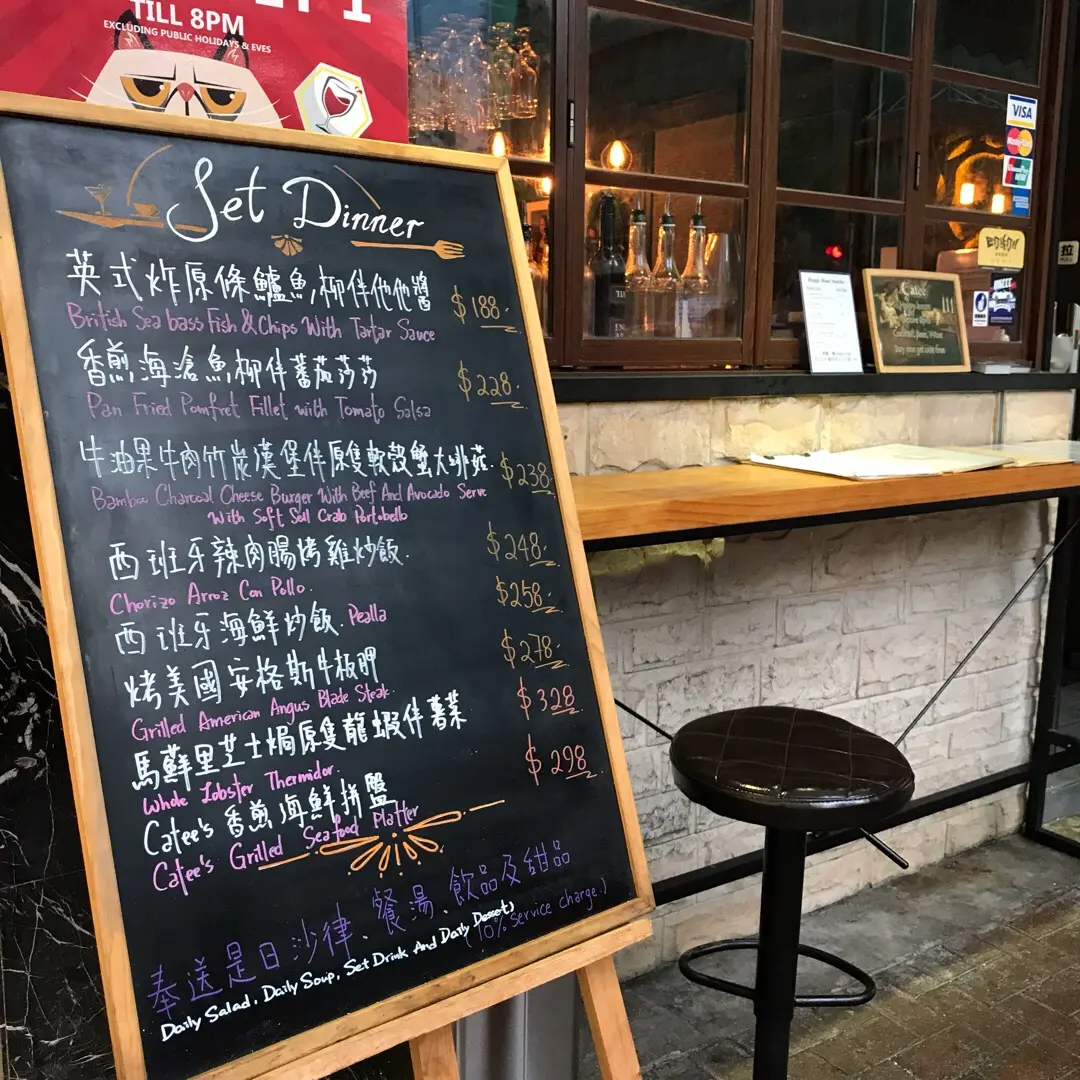 TILL 8PM
EXCLUDING PUBLIC HOLIDAYS & EVES
Set Dinner
英式炸原條鱸魚柳伴他他醬
$188.
British Seabass Fish & Chips With Tartar Sauce
香煎海滄魚柳伴蕃茄莎莎
$228.
Pan Fried Pomfret Fillet with Tomato Salsa
牛油果牛肉竹炭漢堡伴原隻軟殼蟹大啡菇.
$238.
Bamboo Charcoal Cheese Burger With Beef And Avocado Serve
With Soft Sell Crab Portobello
西班牙辣肉腸烤雞炒飯.
$248.
Chorizo Arroz Con Pollo.
西班牙海鮮炒飯. Pealla
$258.
烤美國安格斯牛板胛
$278.
Grilled American Angus Blade Steak.
馬蘇里芝士焗原隻龍蝦伴薯菜
$328
Whole Lobster Thermidor.
Catee's 香煎海鮮拼盤
$298
Catee's Grilled Seafood Platter
奉送是日沙律、餐湯、飲品及甜品
Daily Salad, Daily Soup, Set Drink And Daily Dessert
(10% service charge.)
VISA
MasterCard
UnionPay
Catee